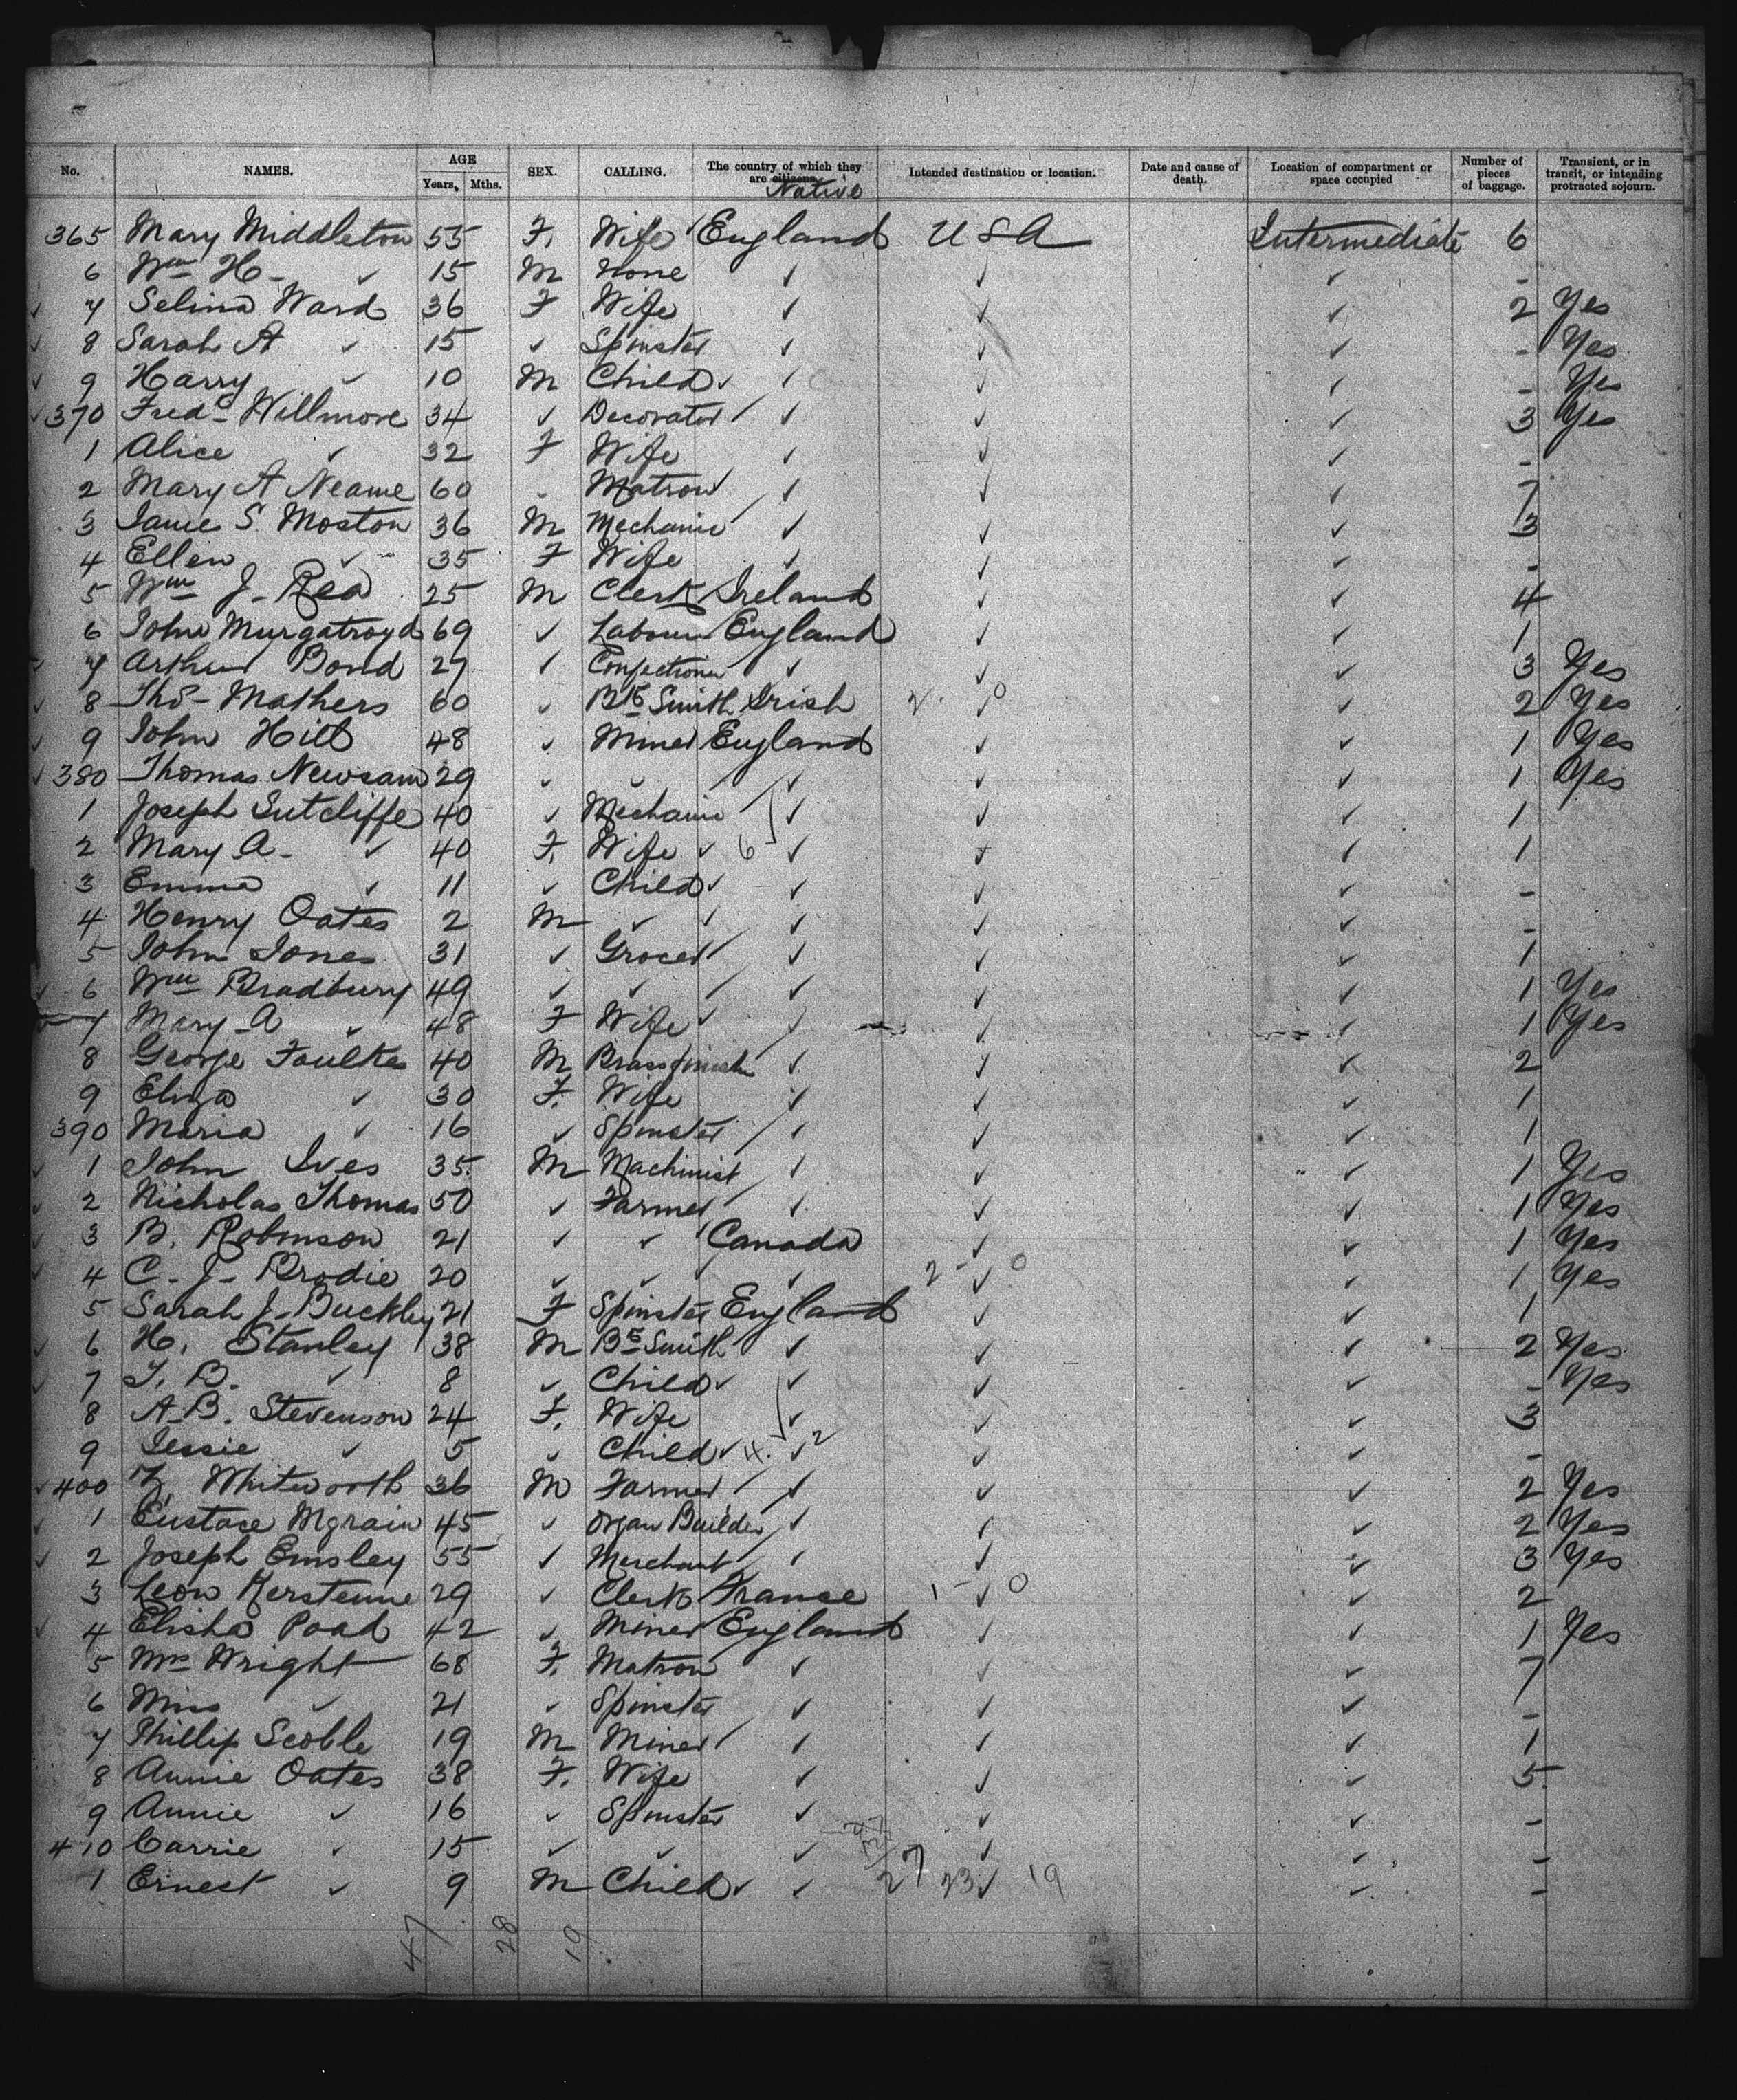 No. NAMES. AGE Years, Mths. SEX. CALLING. The country of which they are citizens. Native Intended destination or location. Date and cause of death. Location of compartment or space occupied Number of pieces of baggage. Transient, or in transit, or intending protracted sojourn.
365 Mary Middleton 55 F. Wife England USA Intermediate 6
6 Wm H - ✓ 15 M None ✓ ✓ ✓ -
✓ 7 Selina Ward 36 F Wife ✓ ✓ ✓ 2 Yes
✓ 8 Sarah A ✓ 15 ✓ Spinster ✓ ✓ ✓ - Yes
✓ 9 Harry ✓ 10 M Child ✓ ✓ ✓ ✓ - Yes
✓ 370 Fredc Willmore 34 ✓ Decorator ✓ ✓ ✓ 3 Yes
1 Alice ✓ 32 F Wife ✓ ✓ ✓ -
2 Mary A Neame 60 ✓ Matron ✓ ✓ ✓ 7
3 Jame S. Moston 36 M Mechanic ✓ ✓ ✓ 3
4 Ellen ✓ 35 F Wife ✓ ✓ ✓ -
5 Wm J - Rea 25 M Clerk Ireland ✓ ✓ 4
6 John Murgatroyd 69 ✓ Labourer England ✓ ✓ 1
✓ 7 Arthur Bond 27 ✓ Confectioner ✓ ✓ ✓ 3 Yes
✓ 8 Thos - Mathers 60 ✓ Bk Smith Irish 2 - ✓ 0 ✓ 2 Yes
✓ 9 John Hill 48 ✓ Miner England ✓ ✓ 1 Yes
✓ 380 Thomas Newsam 29 ✓ ✓ ✓ ✓ ✓ 1 Yes
1 Joseph Sutcliffe 40 ✓ Mechanic ✓ ✓ ✓ 1
2 Mary A - ✓ 40 F. Wife ✓ 6 ✓ ✓ ✓ 1
3 Emma ✓ 11 ✓ Child ✓ ✓ ✓ ✓ -
4 Henry Oates 2 M ✓ ✓ ✓ ✓ ✓ -
5 John Jones 31 ✓ Grocer ✓ ✓ ✓ 1
✓ 6 Wm Bradbury 49 ✓ ✓ ✓ ✓ ✓ 1 Yes
7 Mary A ✓ 48 F Wife ✓ ✓ ✓ 1 Yes
8 George Foulkes 40 M Brassfinisher ✓ ✓ ✓ 2
9 Eliza ✓ 30 F. Wife ✓ ✓ ✓ 1
390 Maria ✓ 16 ✓ Spinster ✓ ✓ ✓ 1
✓ 1 John Ives 35 M Machinist ✓ ✓ ✓ 1 Yes
✓ 2 Nicholas Thomas 50 ✓ Farmer ✓ ✓ ✓ 1 Yes
✓ 3 B. Robinson 21 ✓ ✓ Canada ✓ ✓ 1 Yes
✓ 4 C - J - Brodie 20 ✓ ✓ ✓ 2 - ✓ 0 ✓ 1 Yes
5 Sarah J. Buckley 21 F Spinster England ✓ ✓ 1
✓ 6 H. Stanley 38 M Bk Smith ✓ ✓ ✓ 2 Yes
✓ 7 T. B. ✓ 8 ✓ Child ✓ ✓ ✓ ✓ - Yes
8 A. B. Stevenson 24 F. Wife ✓ ✓ ✓ 3
9 Jessie ✓ 5 ✓ Child ✓ 4. ✓ 2 ✓ ✓ -
✓ 400 Whitworth 36 M Farmer ✓ ✓ ✓ 2 Yes
✓ 1 Eustace 45 ✓ Organ Builder ✓ ✓ ✓ 2 Yes
✓ 2 Joseph Emsley 55 ✓ Merchant ✓ ✓ ✓ 3 Yes
3 Leon Kerstenne 29 ✓ Clerk France 1 - ✓ 0 ✓ 2
✓ 4 Elisha Poad 42 ✓ Miner England ✓ ✓ 1 Yes
5 Mrs Wright 68 F. Matron ✓ ✓ ✓ 7
6 Miss ✓ 21 ✓ Spinster ✓ ✓ ✓ -
7 Phillip Scoble 19 M Miner ✓ ✓ ✓ 1
8 Annie Oates 38 F. Wife ✓ ✓ ✓ 5
9 Annie ✓ 16 ✓ Spinster ✓ ✓ ✓ -
410 Carrie ✓ 15 ✓ ✓ ✓ ✓ ✓ -
1 Ernest ✓ 9 M Child ✓ ✓ 27 23 ✓ 19 ✓ -
47 28 19